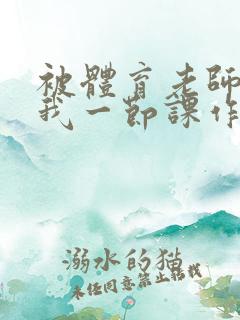 被體育老師
我一節課作
溺水的猫
未任同意禁止转载